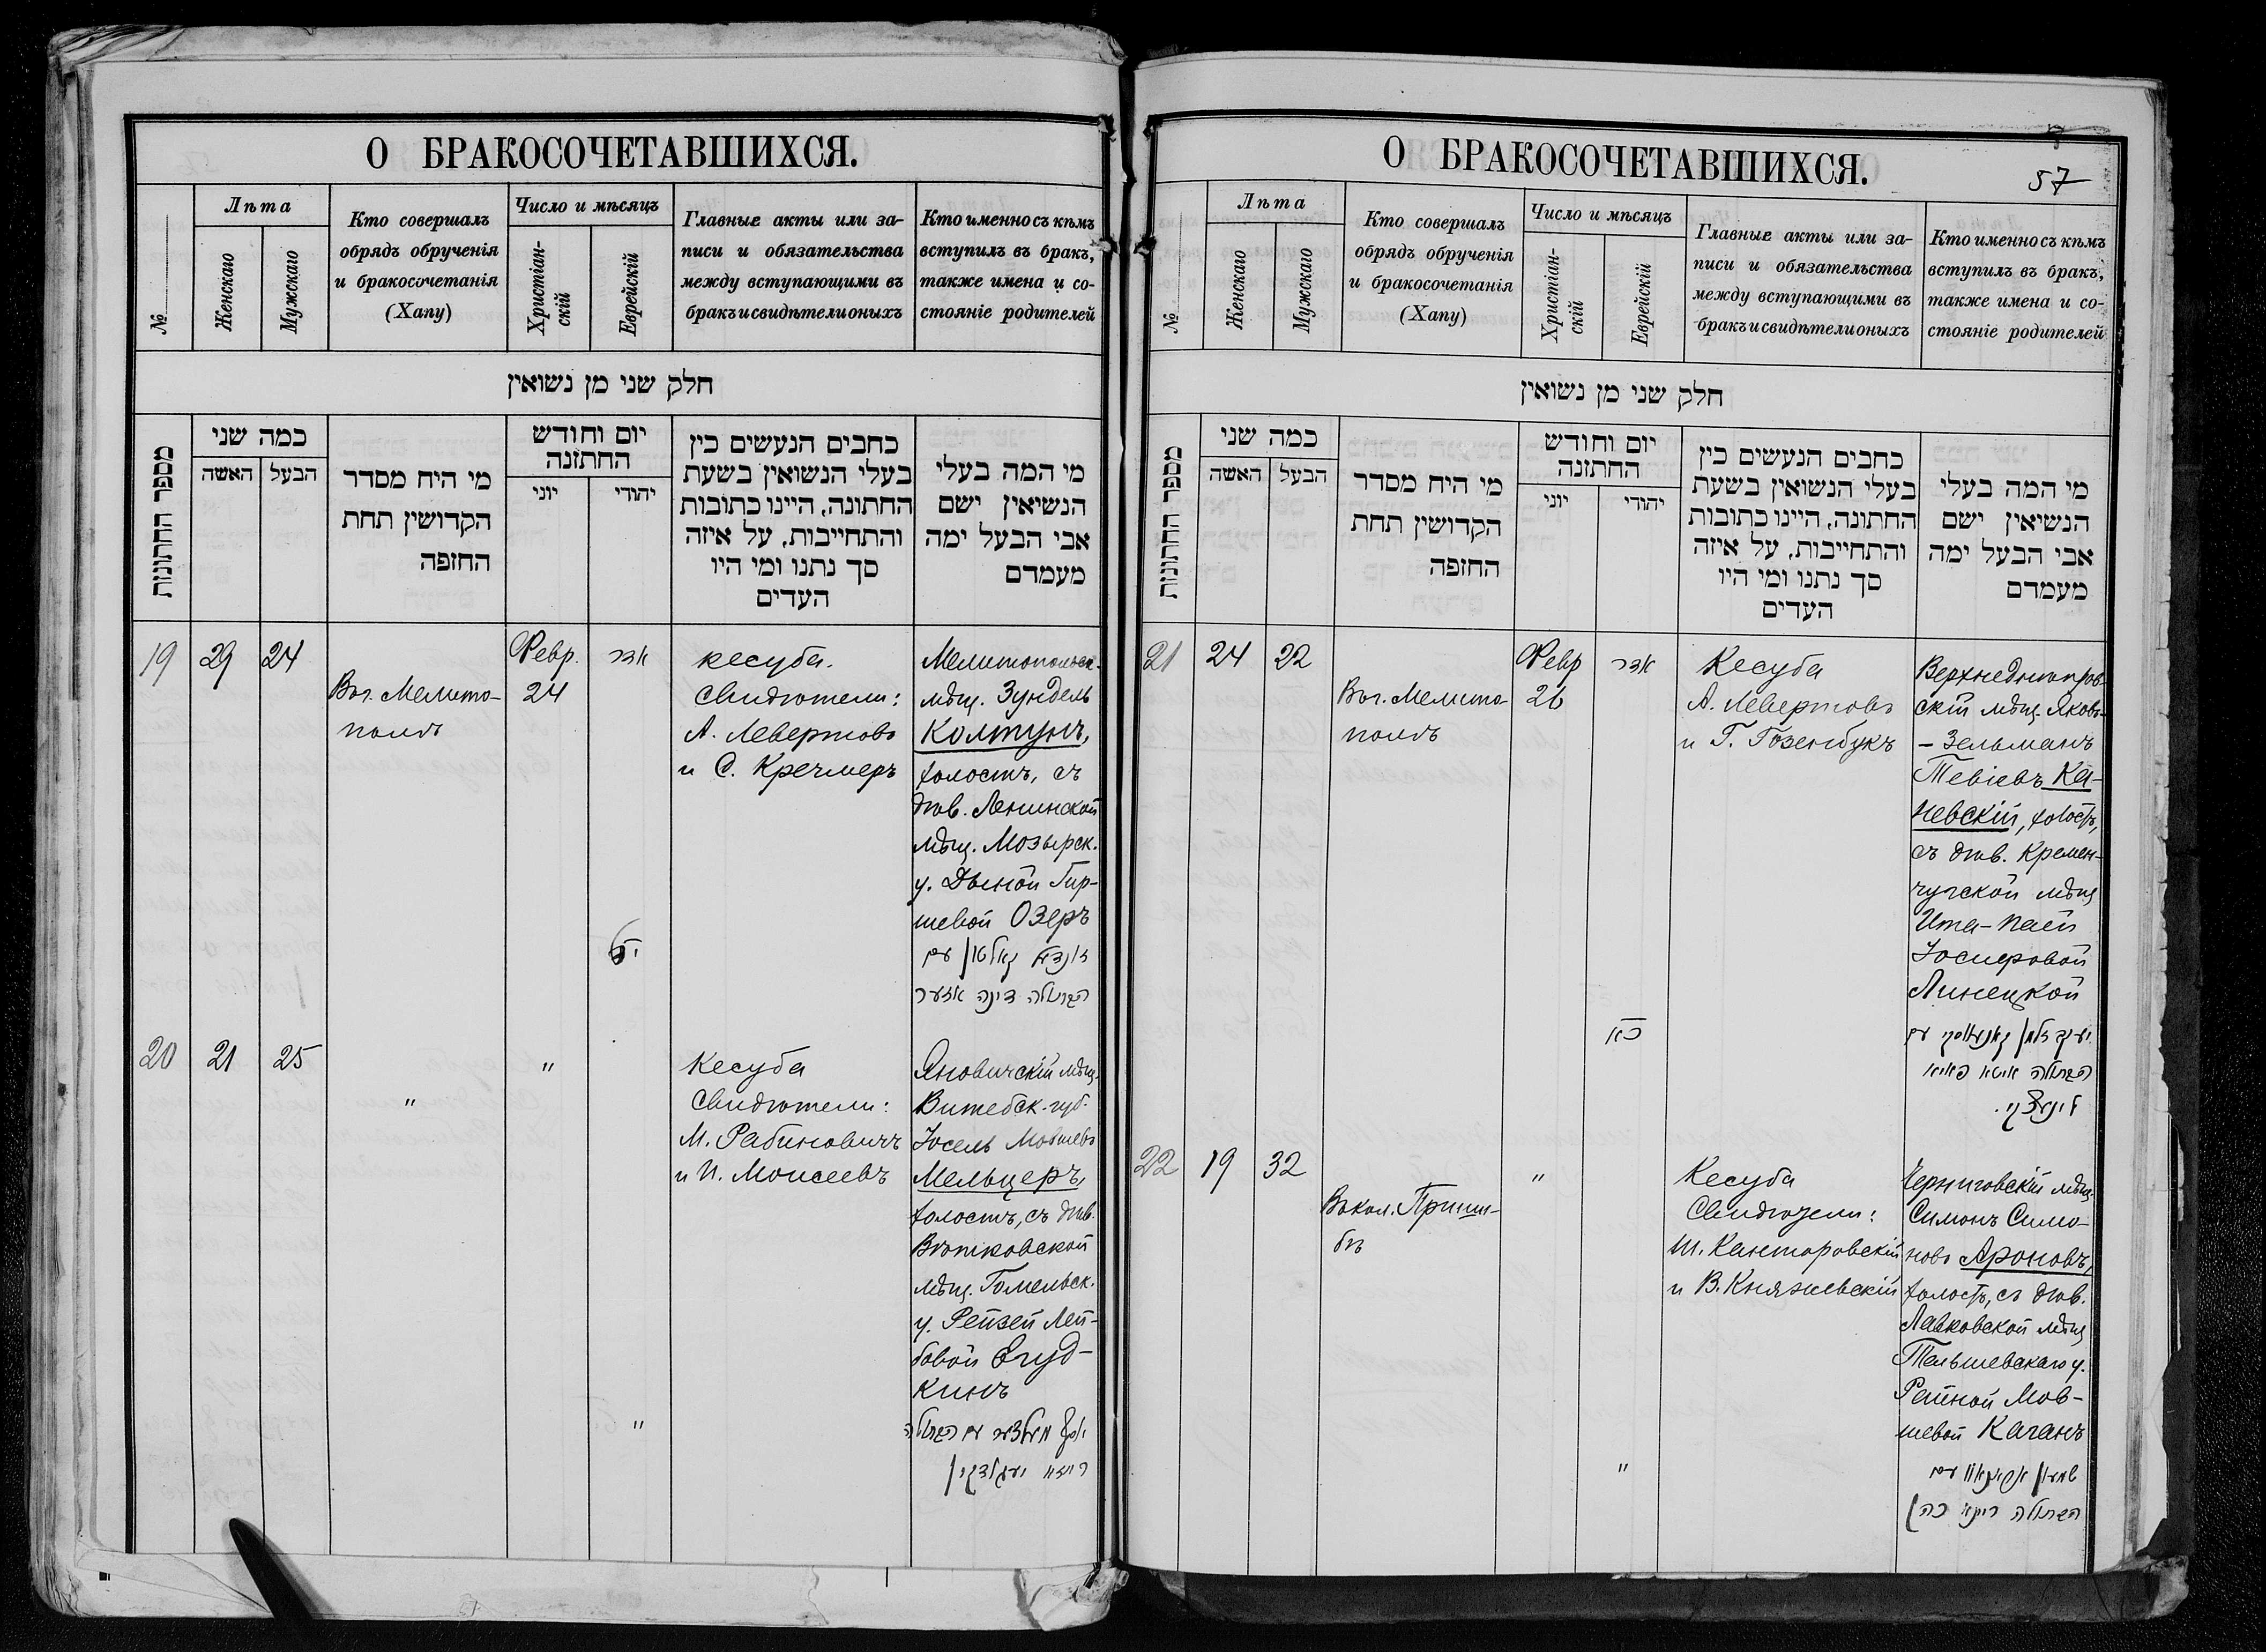 О БРАКОСОЧЕТАВШИХСЯ.
№
Лѣта
Женскаго
Мужскаго
Кто совершалъ
обрядъ обрученія
и бракосочетанія
(Хапу)
Число и мѣсяцъ
Христіан-
скій
Еврейскій
Главные акты или за-
писи и обязательства
между вступающими въ
бракъ и свидѣтели оныхъ
Кто именно съ кѣмъ
вступилъ въ бракъ,
также имена и со-
стояніе родителей
חלק שני מן נשואין
מספר החתונות
כמה שני
האשה
הבעל
מי היח מסדר
הקדושין תחת
החזפה
יום וחודש
החתזנה
יוני
יהודי
כחבים הנעשים כין
בעלי הנשואין בשעת
החתונה, היינו כתובות
והתחייבות, על איזה
סך נתנו ומי היו
העדים
מי המה בעלי
הנשיאין ישם
אבי הבעל ימה
מעמדם
19
29
24
Въ г. Мелито-
полѣ
Февр.
24
אדר
יט
кесуба.
Свидѣтели:
А. Левертовъ
и С. Кречмеръ
Мелитопольск.
мѣщ. Зундель
Колтунъ,
холостъ, съ
дѣв. Ленинской
мѣщ. Мозырск.
у. Дыной Гир-
шевой Озеръ
זונדל קאלטון עם
הבתולה דינה אזער
20
21
25
"
"
"
Кесуба
Свидѣтели:
М. Рабиновичъ
и И. Моисеевъ
Яновичскій мѣщ.
Витебск. губ.
Іосель Мовшевъ
Мельцеръ,
холостъ, съ дѣв.
Вѣтковской
мѣщ. Гомельск.
у. Рейзей Лей-
бовой Егуд-
кинъ
יוסף מעלצער עם הבתולה
О БРАКОСОЧЕТАВШИХСЯ.
57
№
Лѣта
Женскаго
Мужскаго
Кто совершалъ
обрядъ обрученія
и бракосочетанія
(Хапу)
Число и мѣсяцъ
Христіан-
скій
Еврейскій
Главные акты или за-
писи и обязательства
между вступающими въ
бракъ и свидѣтели оныхъ
Кто именно съ кѣмъ
вступилъ въ бракъ,
также имена и со-
стояніе родителей
חלק שני מן נשואין
מספר החתונות
כמה שני
האשה
הבעל
מי היח מסדר
הקדושין תחת
החזפה
יום וחודש
החתזנה
יוני
יהודי
כחבים הנעשים כין
בעלי הנשואין בשעת
החתונה, היינו כתובות
והתחייבות, על איזה
סך נתנו ומי היו
העדים
מי המה בעלי
הנשיאין ישם
אבי הבעל ימה
מעמדם
21
24
22
Въ г. Мелито-
полѣ
Февр
26
אדר
כא
Кесуба
А. Левертовъ
и Г. Гозенбукъ
Верхнеднѣпров-
скій мѣщ. Яковъ-
- Зельманъ
Тевіевъ Ка-
невскій, холостъ,
съ дѣв. Кремен-
чугской мѣщ
Ита-Паей
Іосифовой
Линецкой
יעקב זלמן קאנעווסקי עם
הבתולה איטא פאיא
לינעצקי.
22
19
32
Въ кол. Приши-
бъ
"
"
Кесуба
Свидѣтели:
Ш. Канторовскій
и В. Княжевскій
Черниговскій мѣщ.
Симонъ Симо-
новъ Ароновъ,
холостъ, съ дѣв.
Лавковской мѣщ
Тельшевскаго у.
Рейной Мов-
шевой Каганъ
הבתולה ריינא כהן